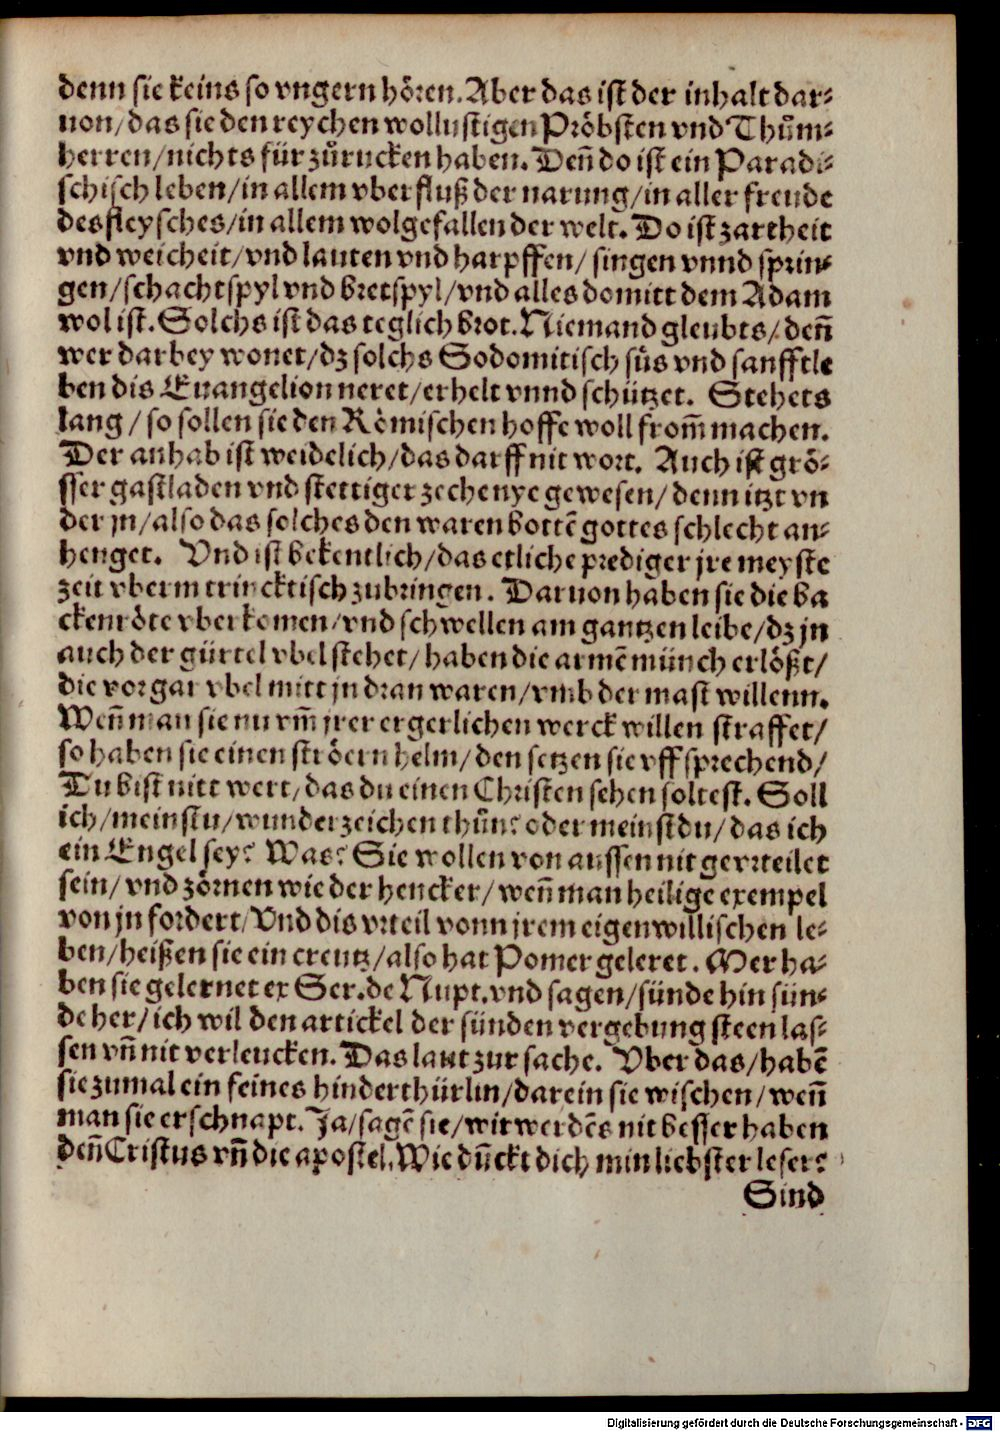 denn sie keins so vngern hören. Aber das ist der inhalt dar⸗
uon/ das sie den reychen wollustigen Pröbsten vnd Thům⸗
herren/ nichts für zůrucken haben. Deñ do ist ein Paradi⸗
schisch leben/ in allem vberfluß der narung/ in aller freude
des fleysches/ in allem wolgefallen der welt. Do ist zartheit
vnd weicheit/ vnd lauten vnd harpffen/ singen vnnd sprin⸗
gen/ schachtspyl vnd bretspyl/ vnd alles domitt dem Adam
wol ist. Solchs ist das teglich brot. Niemand gleubts/ deñ
wer darbey wonet/ dz solchs Sodomitisch süs vnd sanfftle
ben dis Euangelion neret/ erhelt vnnd schützet. Stehets
lang/ so sollen sie den Römischen hoffe woll from̃ machen.
Der anhab ist weidelich/ das darff nit wort. Auch ist grö⸗
sser gastladen vnd stettiger zeche nye gewesen/ denn itzt vn
der jn/ also das solches den waren bottē gottes schlecht an⸗
henget. Vnd ist bekentlich/ das etliche prediger jre meyste
zeit vberm trincktisch zubringen. Daruon haben sie die ba
ckenröte vberkomen/ vnd schwellen am gantzen leibe/ dz jn
auch der gürtel vbel stehet/ haben die armē münch erlößt/
die vor gar vbel mitt jn dran waren/ vmb der mast willenn.
Weñ man sie nu vm̃ jrer ergerlichen werck willen straffet/
so haben sie einen ströern helm/ den setzen sie vff sprechend/
Du bist nitt wert/ das du einen Christen sehen soltest. Soll
ich/ meinstu/ wunderzeichen thůn? oder meinstdu/ das ich
ein Engel sey? Was? Sie wollen von aussen nit gevrteilet
sein/ vnd zörnen wie der hencker/ weñ man heilige exempel
von jn fordert/ Vnd dis vrteil vonn jrem eigenwillischen le⸗
ben/ heißen sie ein creutz/ also hat Pomer geleret. Mer ha⸗
ben sie gelernet ex Ser. de Nupt. vnd sagen/ sünde hin sün⸗
de her/ ich wil den artickel der sünden vergebung steen las⸗
sen vñ nit verleucken. Das laut zur sache. Vber das/ habē
sie zumal ein feines hinderthürlin/ darein sie wischen/ weñ
man sie erschnapt. Ja/ sagē sie/ wir werdēs nit besser haben
deñ Cristus vñ die apostel. Wie dũckt dich min liebster leser?
Sind
Digitalisierung gefördert durch die Deutsche Forschungsgemeinschaft - DFG